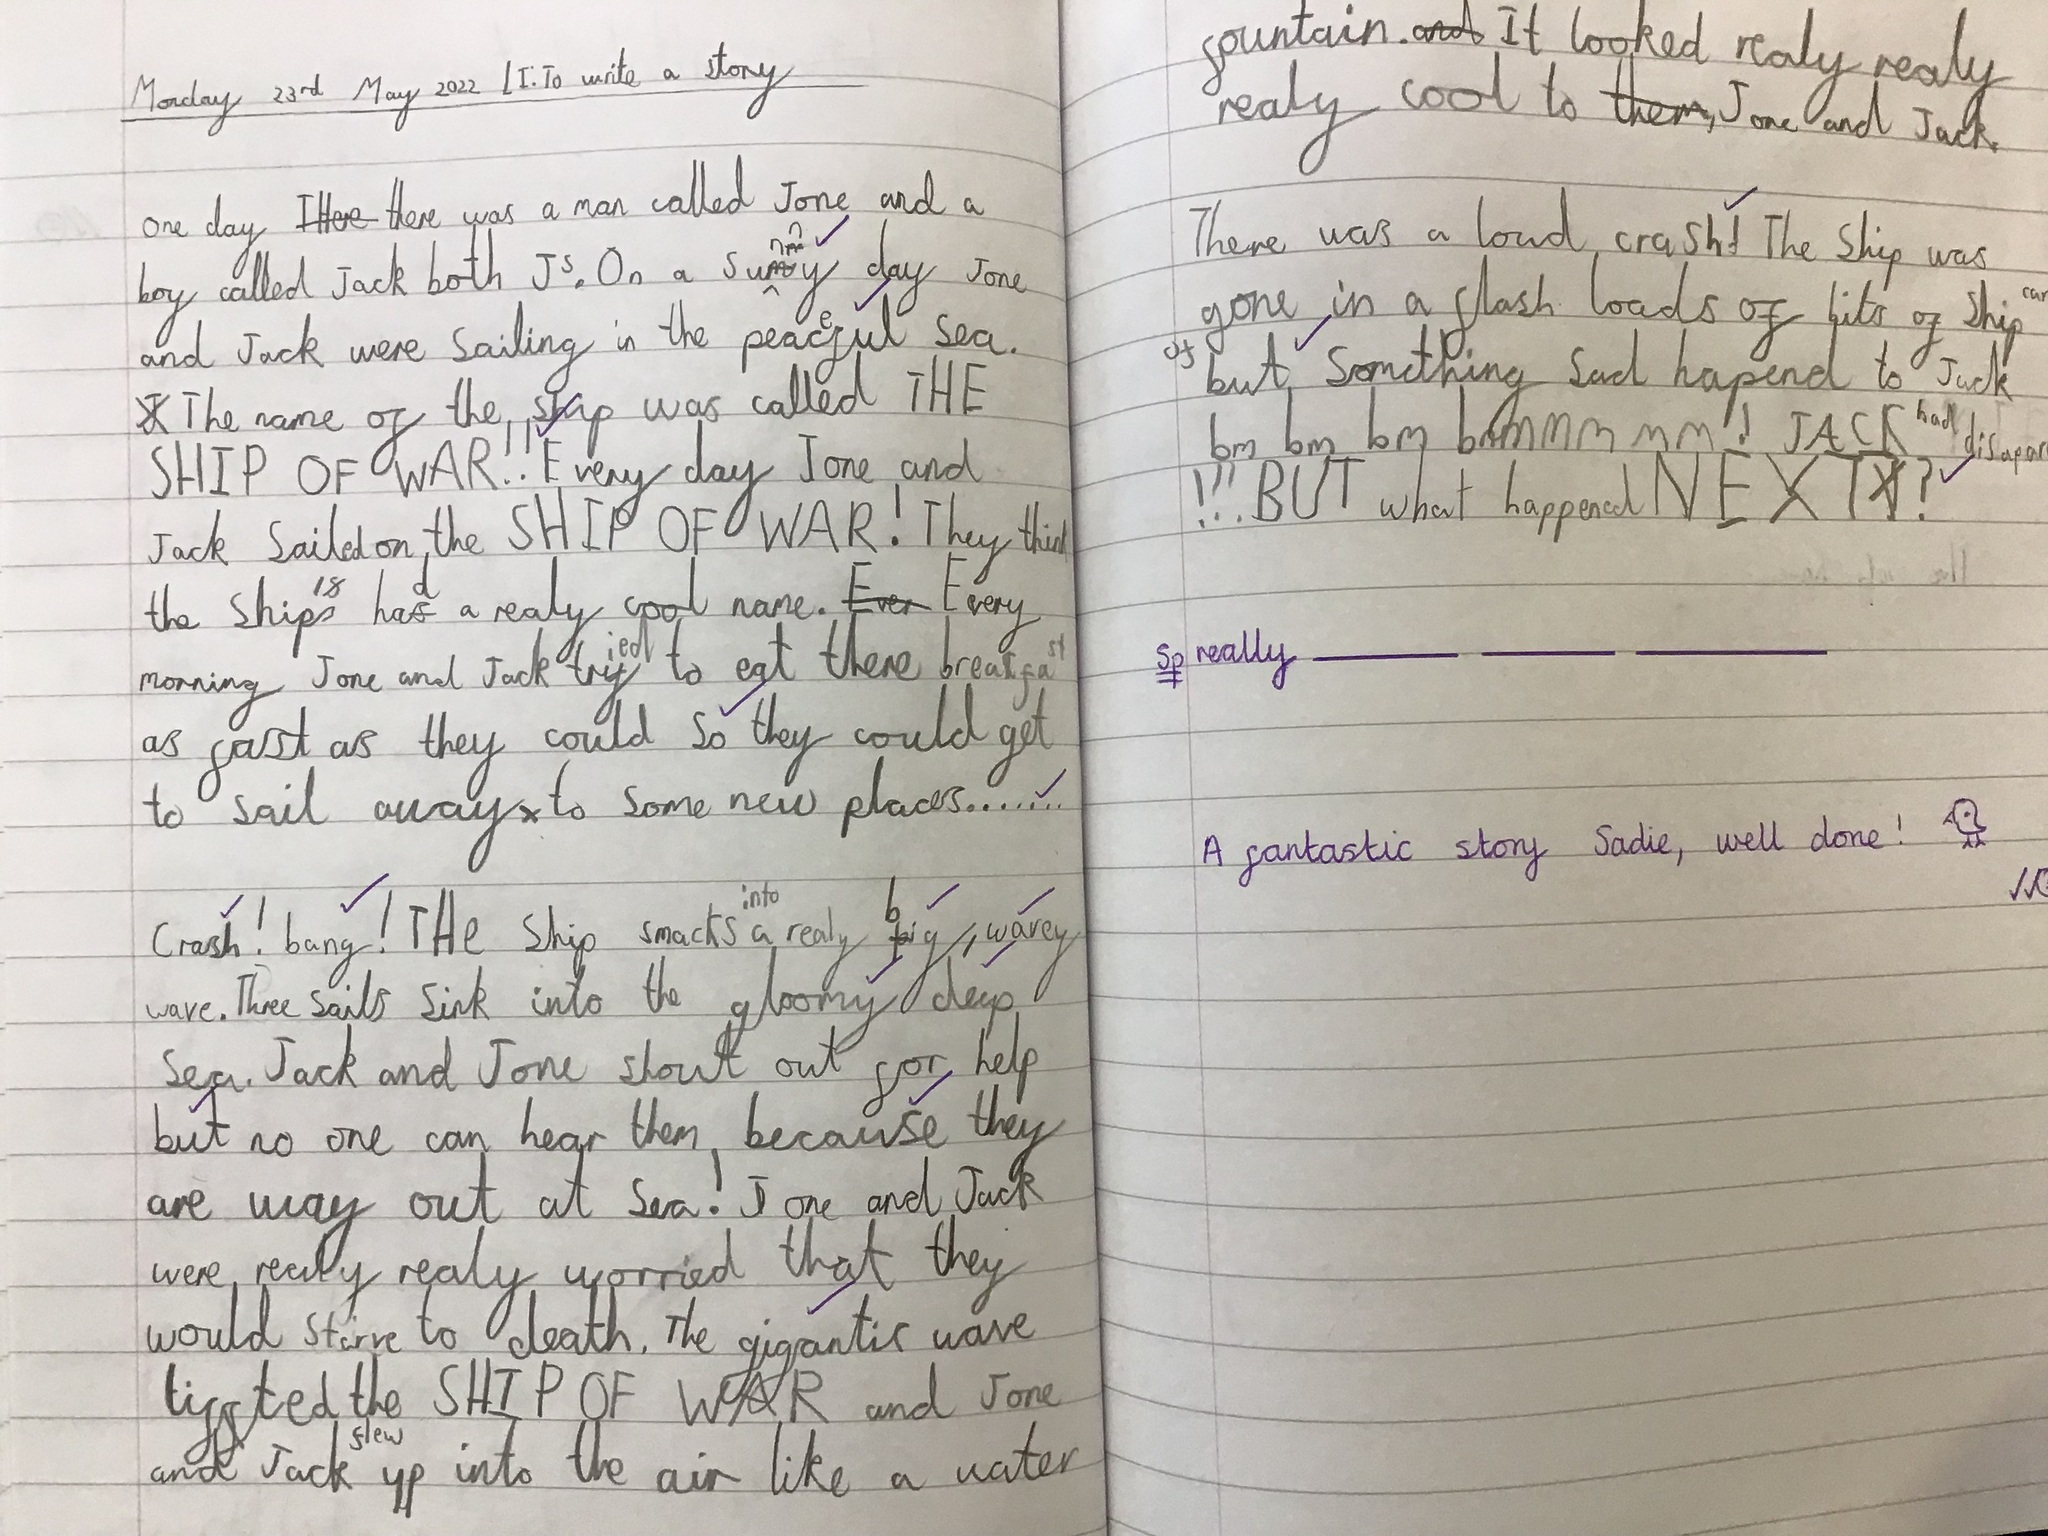 Monday 23rd May 2022 LI: To write a story
one day there was a man called Jone and a
boy called Jack both Js. On a sunny day Jone
and Jack were Sailing in the peaceful Sea.
The name of the ship was called THE
SHIP OF WAR!! Every day Jone and
Jack Sailed on the SHIP OF WAR! They think
the Ship had a realy cool name. Every
morning Jone and Jack tried to eat there breakfast
as fast as they could so they could get
to sail away to some new places......
Crash! bang! THe Ship smacks into a realy big, wavey
wave. Three sails sink into the gloomy deep
Sea. Jack and Jone shout out for help
but no one can hear them, because they
are way out at Sea! Jone and Jack
were realy realy worried that they
would starve to death. The gigantic wave
liffted the SHIP OF WAR and Jone
and Jack flew up into the air like a water
fountain. It looked realy realy
realy cool to Jone and Jack.
There was a loud crash! The Ship was
gone in a flash loads of bits of Ship
but Something Sad hapend to Jack
bm bm bm JACK had
!!!BUT what happened NEXT?
Sp really
A fantastic story Sadie, well done!